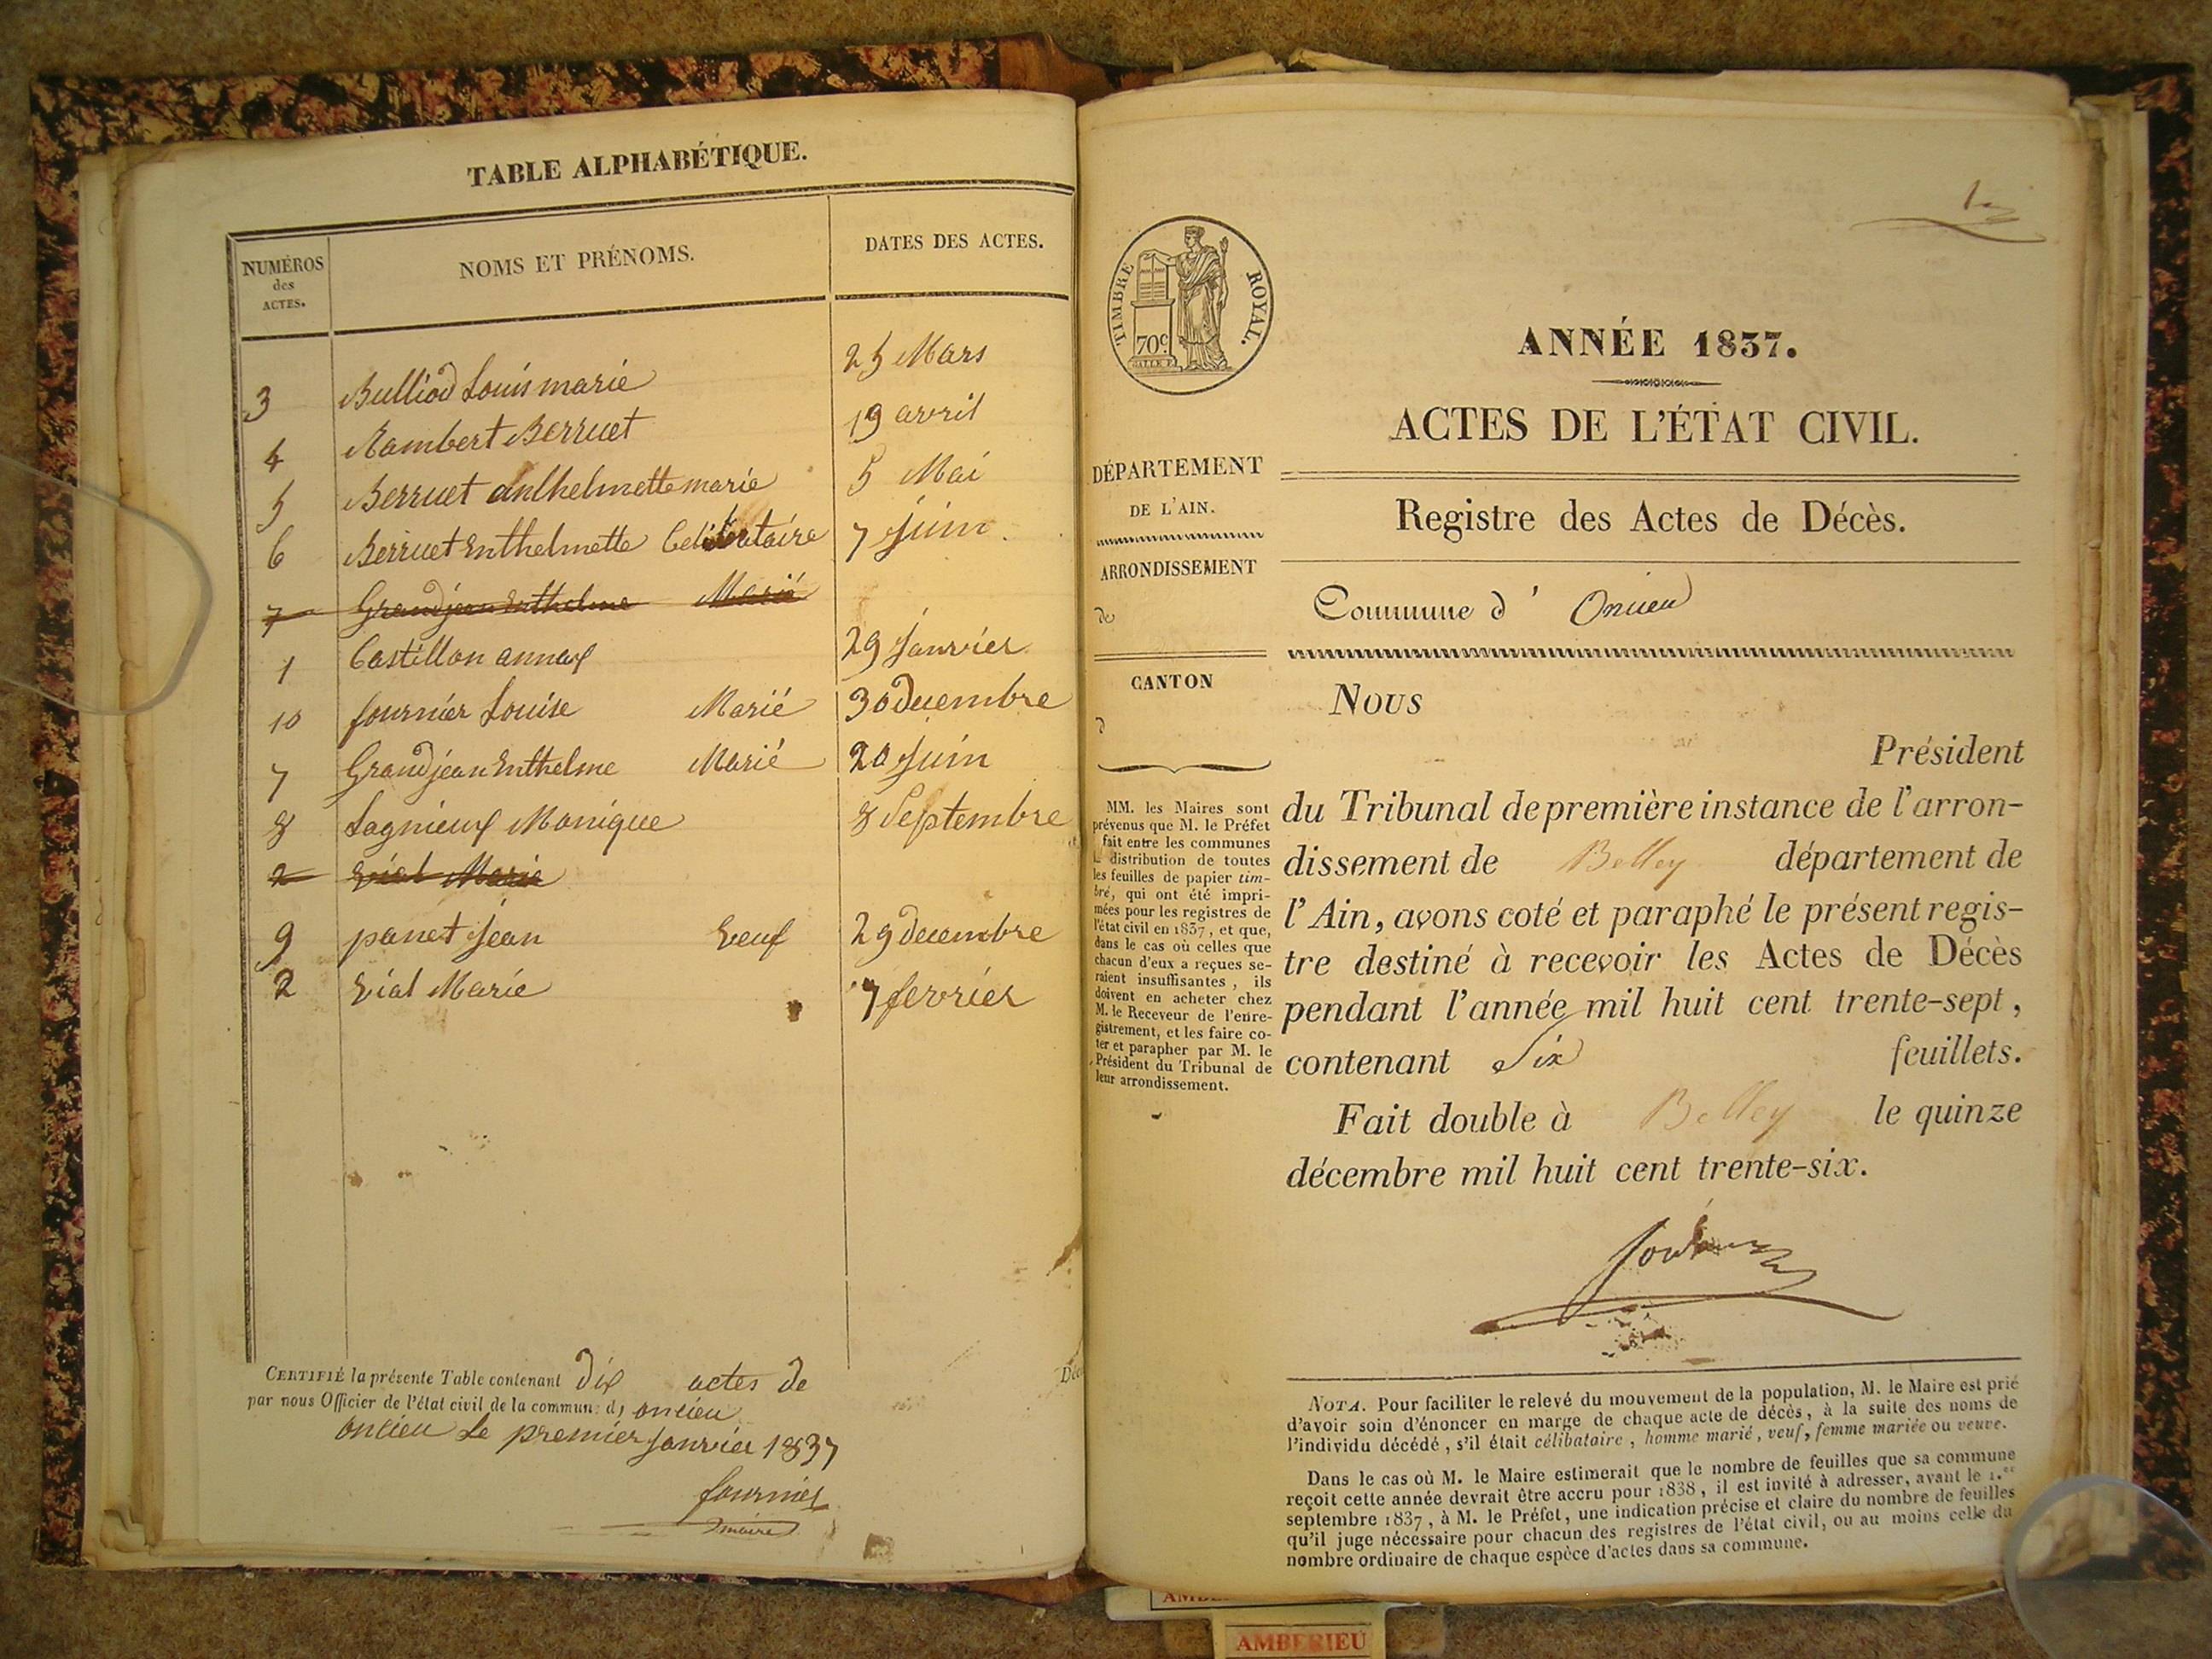 TABLE ALPHABÉTIQUE.
NUMÉROS
des
ACTES.
NOMS ET PRÉNOMS.
DATES DES ACTES.
3 Bulliod Louis marie 25 Mars
4 Rambert Berruet 19 avril
5 Berruet Anthelmette marie 5 Mai
6 Berruet Enthelmette Celibataire 7 Juin
7 Grandjean Enthelme Marié
1 Castillon annax 29 Janvier
10 fournier Louise Marié 30 decembre
7 Grandjean Enthelme Marié 20 Juin
8 Lagnieux Monique 8 Septembre
2 Vial Marie
9 panet Jean Veuf 29 decembre
2 Vial Marie 7 fevrier
CERTIFIÉ la présente Table contenant dix actes de Déc
par nous Officier de l'état civil de la commun: d, oncieu
oncieu Le premier Janvier 1837
fournier
maire
1er
TIMBRE ROYAL.
70c.
ANNÉE 1837.
ACTES DE L'ÉTAT CIVIL.
DÉPARTEMENT
DE L'AIN.
Registre des Actes de Décès.
ARRONDISSEMENT
de
Commune d' Oncieu
CANTON
d
Nous
Président
du Tribunal de première instance de l'arron-
dissement de Belley département de
l'Ain, avons coté et paraphé le présent regis-
tre destiné à recevoir les Actes de Décès
pendant l'année mil huit cent trente-sept,
contenant Six feuillets.
Fait double à Belley le quinze
décembre mil huit cent trente-six.
MM. les Maires sont
prévenus que M. le Préfet
fait entre les communes
la distribution de toutes
les feuilles de papier tim-
bré, qui ont été impri-
mées pour les registres de
l'état civil en 1837, et que,
dans le cas où celles que
chacun d'eux a reçues se-
raient insuffisantes, ils
doivent en acheter chez
M. le Receveur de l'enre-
gistrement, et les faire co-
ter et parapher par M. le
Président du Tribunal de
leur arrondissement.
NOTA. Pour faciliter le relevé du mouvement de la population, M. le Maire est prié
d'avoir soin d'énoncer en marge de chaque acte de décès, à la suite des noms de
l'individu décédé, s'il était célibataire, homme marié, veuf, femme mariée ou veuve.
Dans le cas où M. le Maire estimerait que le nombre de feuilles que sa commune
reçoit cette année devrait être accru pour 1838, il est invité à adresser, avant le 1.er
septembre 1837, à M. le Préfet, une indication précise et claire du nombre de feuilles
qu'il juge nécessaire pour chacun des registres de l'état civil, ou au moins celle du
nombre ordinaire de chaque espèce d'actes dans sa commune.
AMBERIEU